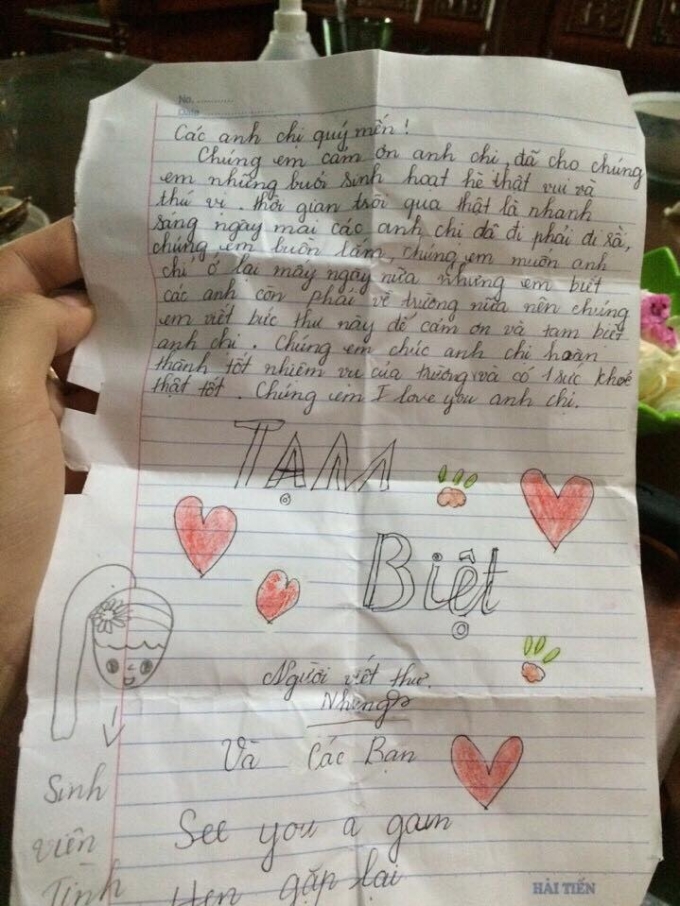 No. ............
Date ............
Các anh chị quý mến !
Chúng em cảm ơn anh chị, đã cho chúng
em những buổi sinh hoạt hè thật vui và
thú vị. thời gian trôi qua thật là nhanh
sáng ngày mai các anh chị đã đi phải đi rồi,
chúng em buồn lắm, chúng em muốn anh
chị ở lại mấy ngày nữa nhưng em biết
các anh còn phải về trường nữa nên chúng
em viết bức thư này để cảm ơn và tạm biệt
anh chị. Chúng em chúc anh chị hoàn
thành tốt nhiệm vụ của trường và có 1 sức khoẻ
thật tốt. Chúng em I love you anh chị.
TẠM
Biệt
Người viết thư.
Nhung
Và Các Bạn
See you a gain
Hẹn gặp lại
Sinh
viên
Tình
HẢI TIẾN